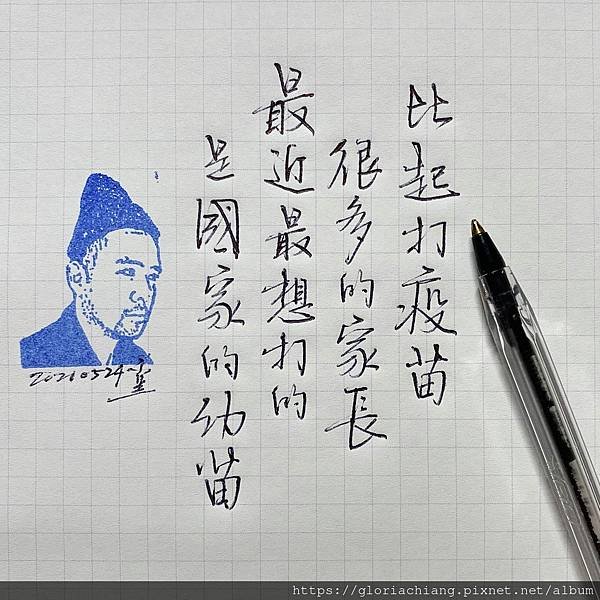 比起打疫苗
很多的家長
最近最想打的
是國家的幼苗
20210524
https://gloriachiang.pixnet.net/album